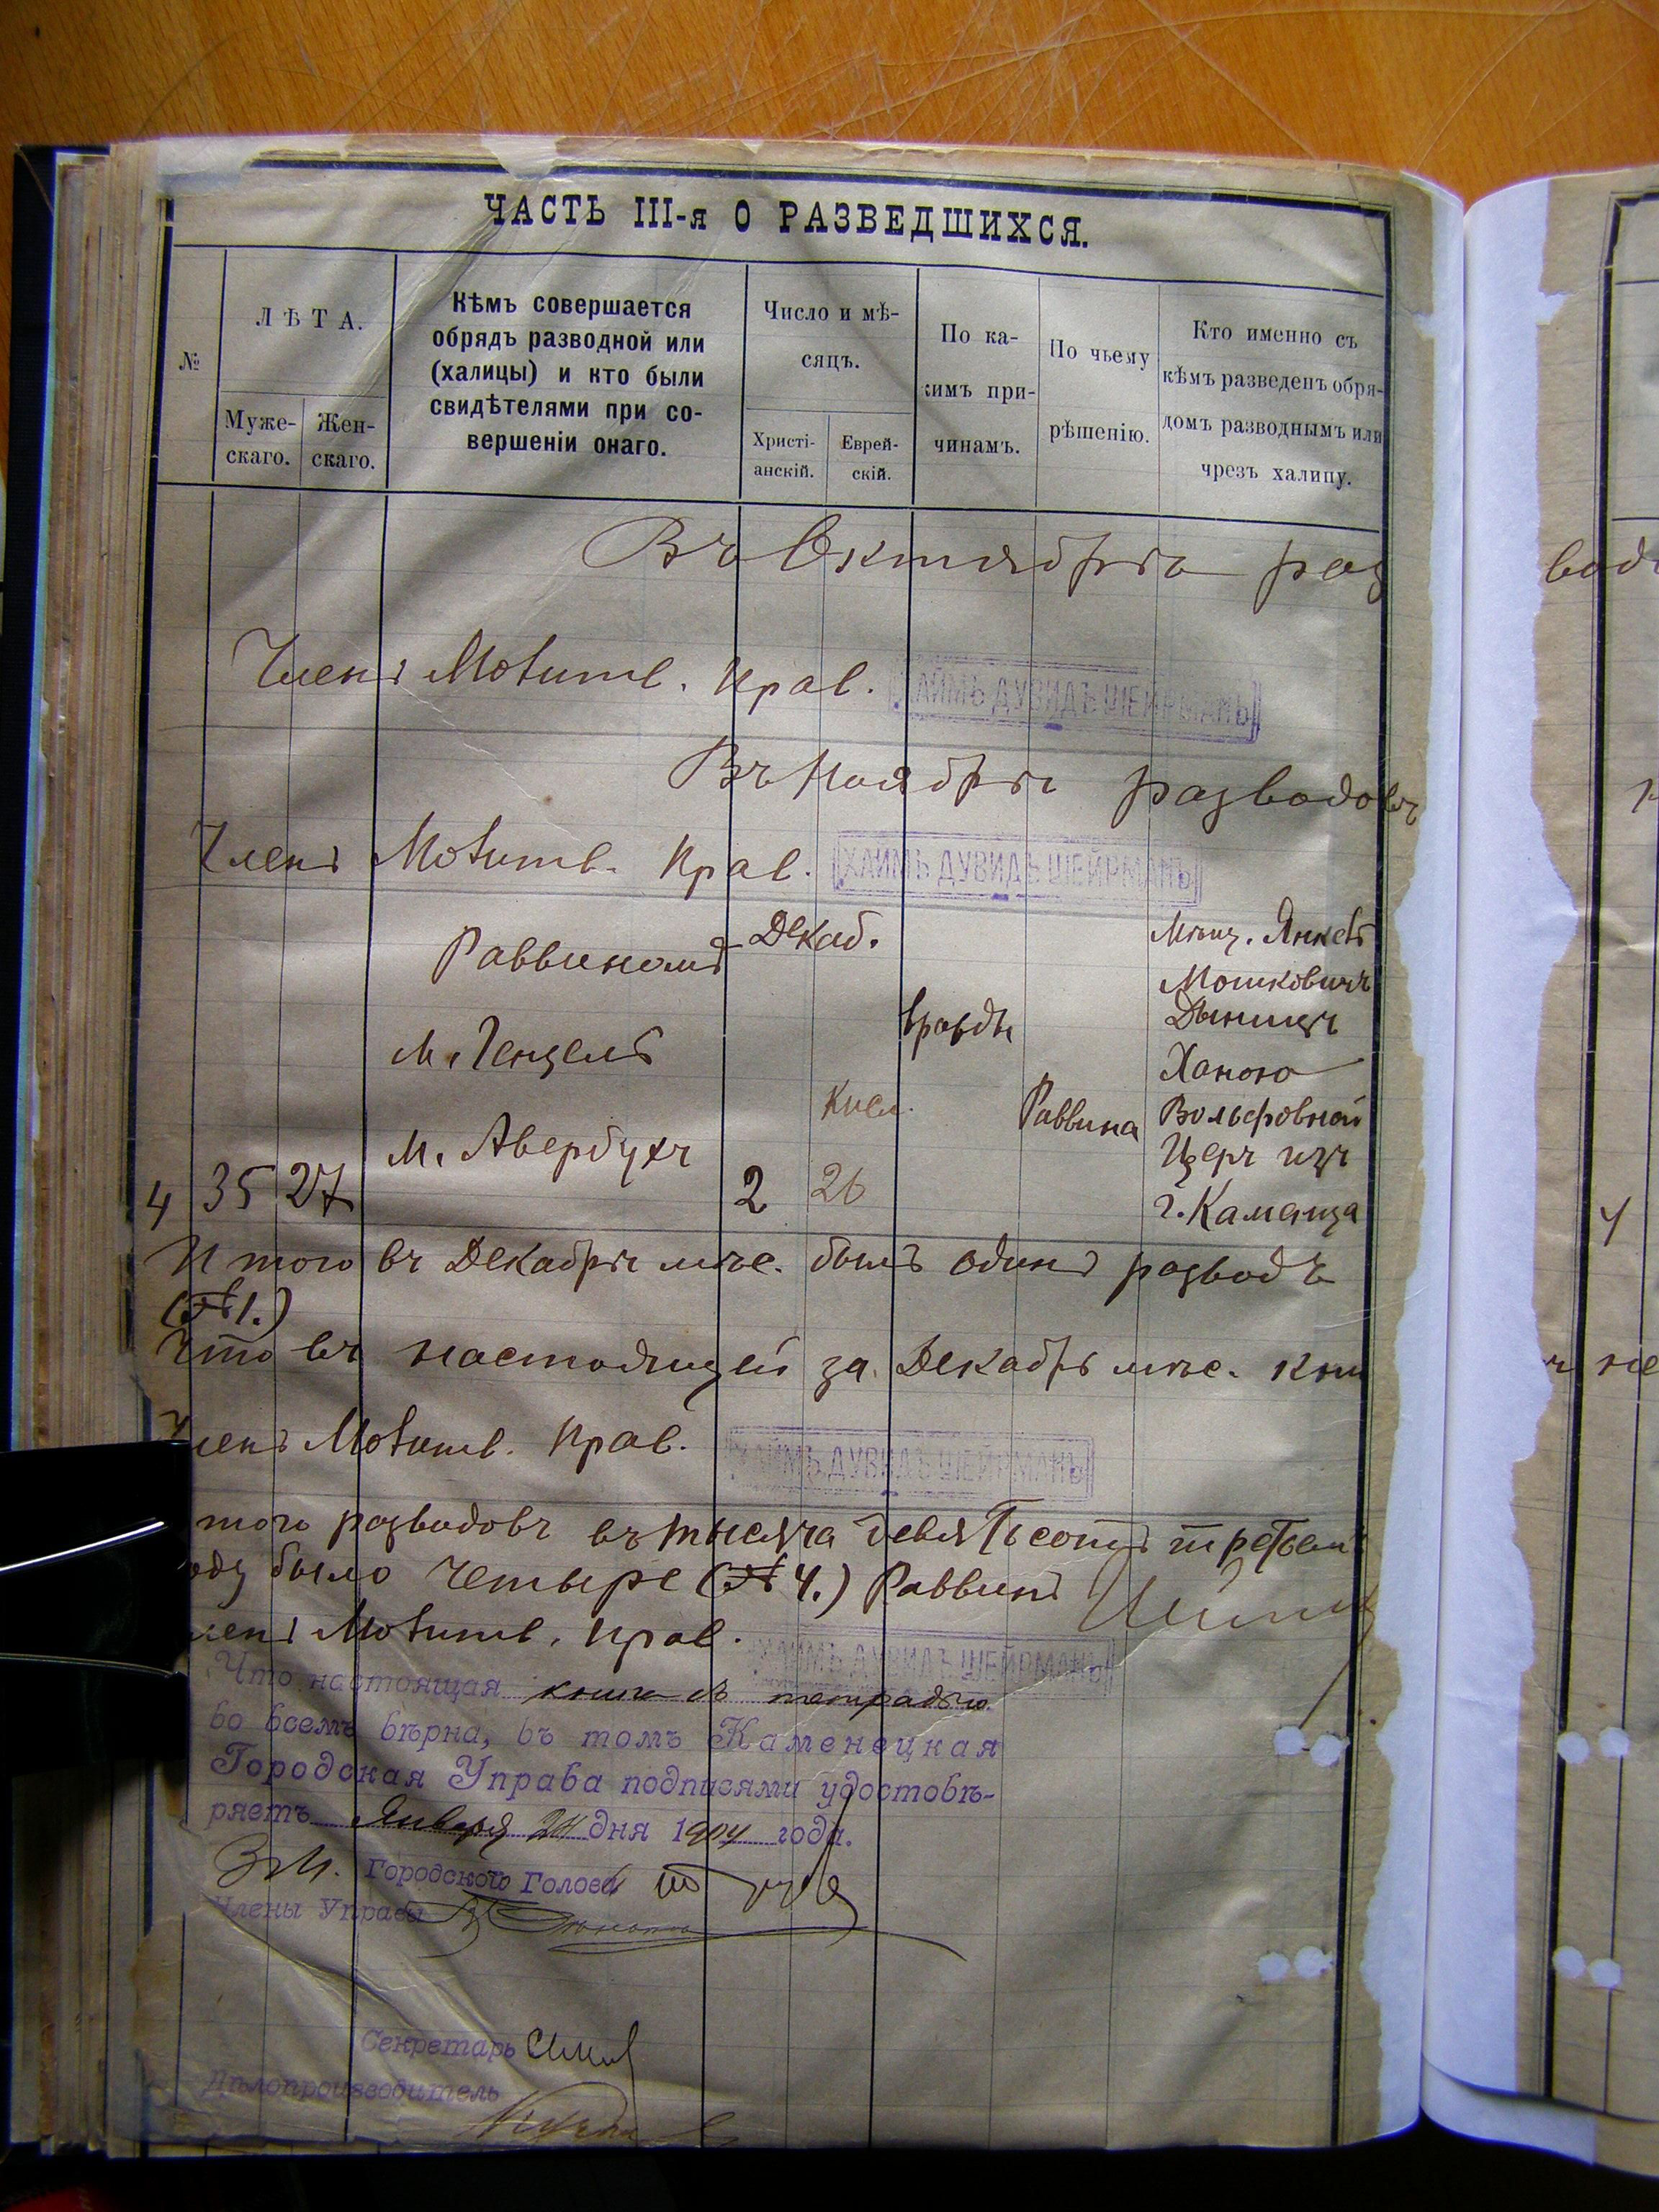 ЧАСТЬ III-я О РАЗВЕДШИХСЯ.
№
ЛѢТА.
Муже-
скаго.
Жен-
скаго.
Кѣмъ совершается
обрядъ разводной или
(халицы) и кто были
свидѣтелями при со-
вершеніи онаго.
Число и мѣ-
сяцъ.
Христі-
анскій.
Еврей-
скій.
По ка-
кимъ при-
чинамъ.
По чьему
рѣшенію.
Кто именно съ
кѣмъ разведенъ обря-
домъ разводнымъ или
чрезъ халицу.
Въ Октябрѣ раз
Членъ Молитв. Прав. ХАИМЪ ДУВИДЪ ШЕЙРМАНЪ
Въ Ноябрѣ разводовъ
Членъ Молитв. Прав. ХАИМЪ ДУВИДЪ ШЕЙРМАНЪ
4
35
27
Раввиномъ
М. Генцель
М. Авербухъ
Декаб.
2
Кисл.
26
вражды
Раввина
Мѣщ. Янкель
Мошковичъ
Ханою
Вольфовной
Церъ изъ
г. Каменца
Итого въ Декабрѣ мѣс. былъ одинъ разводъ
(№ 1.)
Что въ настоящей за Декабрь мѣс. кни
Членъ Молитв. Прав. ХАИМЪ ДУВИДЪ ШЕЙРМАНЪ
того разводовъ въ тысяча девятьсотъ третьемъ
оду было четыре (№ 4.) Раввинъ
ленъ Молитв. Прав. ХАИМЪ ДУВИДЪ ШЕЙРМАНЪ
Что настоящая книга съ тетрадью
во всемъ вѣрна, въ томъ Каменецкая
Городская Управа подписями удостовѣ-
ряетъ Января 24 дня 1904 года.
Зам. Городского Головы
Члены Управы
Секретарь
Дѣлопроизводитель
4